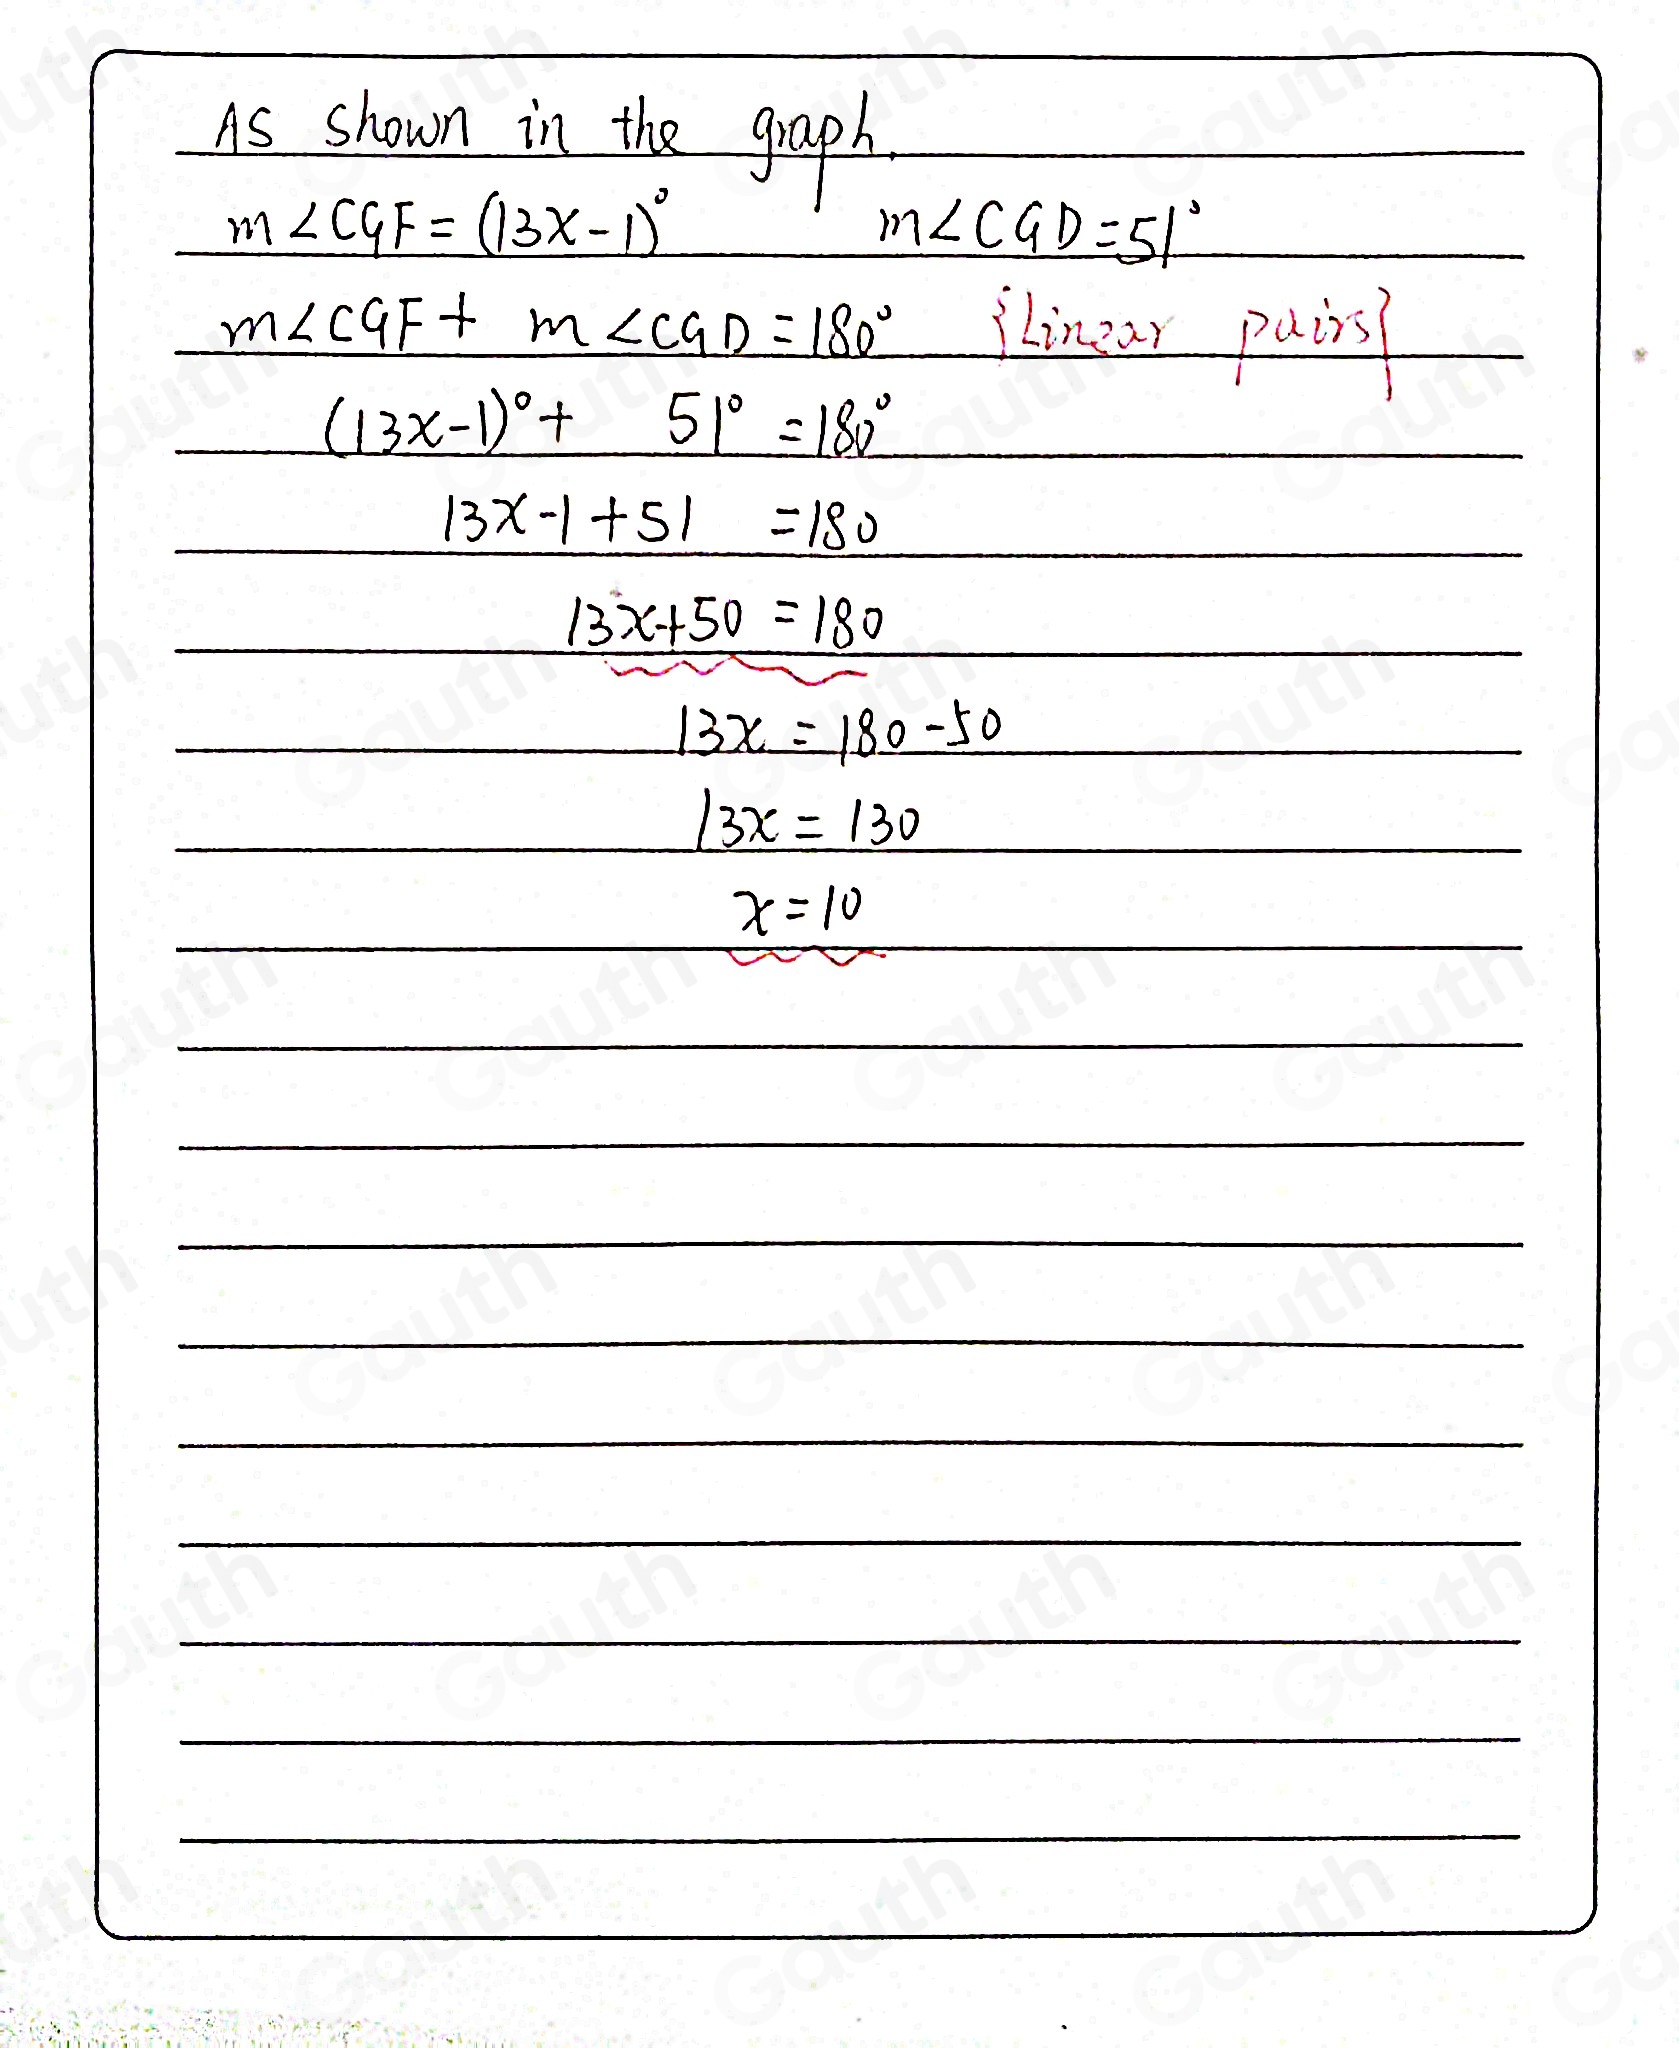 As shown in the graph.
m∠CGF = (13x-1)° m∠CGD = 51°
m∠CGF + m∠CGD = 180° {Linear pairs}
(13x-1)° + 51° = 180°
13x-1+51 = 180
13x+50 = 180
13x = 180-50
13x = 130
x = 10